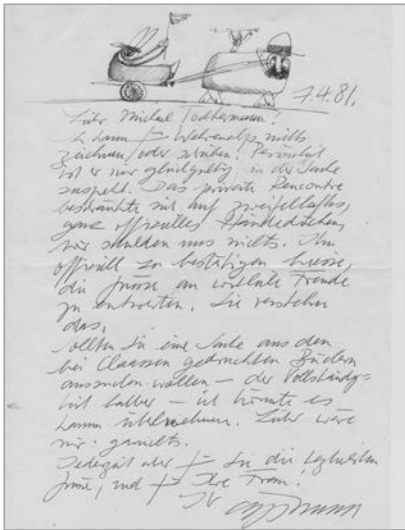 7.4.81.
Lieber Michael Todtermann!
Ich kann für Weltwoche nichts
zeichnen oder schreiben. Persönlich
ist er mir gleichgültig, in der Sache
suspekt. Das private Rencontre
beschränkte sich auf zweifelhaftes,
ganz offizielles Händedrücken,
wir schulden uns nichts. Ihn
offiziell zu bestätigen hiesse,
die Grüsse an wirkliche Freunde
zu entwerten. Sie verstehen
das.
Sollten Sie eine Sache aus den
bei Claassen gedruckten Büchern
aussuchen wollen – der Vollständig=
keit halber – ich könnte es
kaum übelnehmen. Lieber wäre
mir: garnichts.
Jederzeit aber für Sie die
Grüsse, und für Ihre Frau!
Ihr